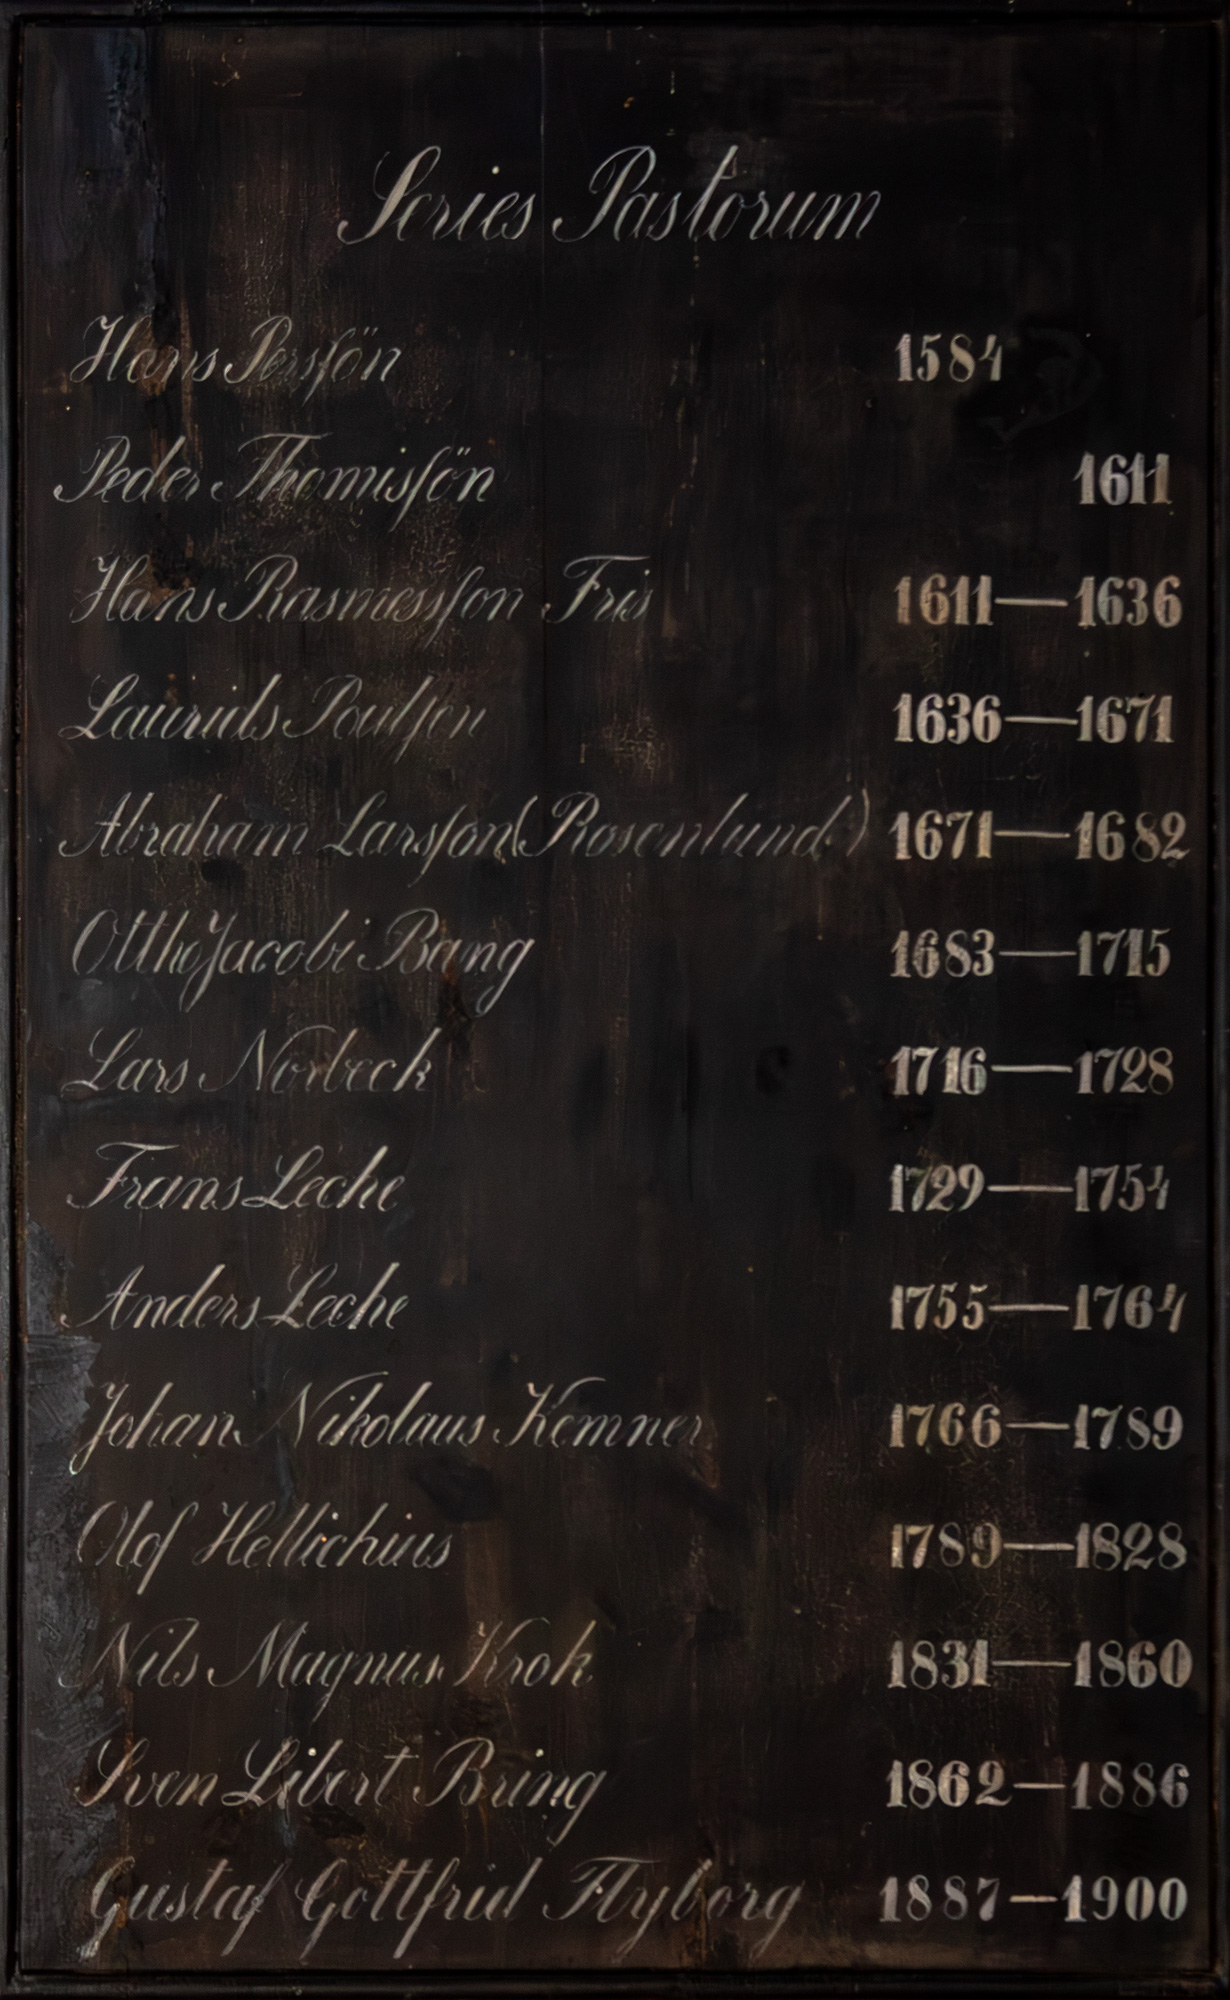 Series Pastorum
Hans Persſön 1584
Peder Thomisſön 1611
Hans Rasmesſon Fris 1611—1636
Laurids Poulſen 1636—1671
Abraham Larsſon (Rosenlund) 1671—1682
Ottho Jacobi Bang 1683—1715
Lars Norbeck 1716—1728
Frans Leche 1729—1754
Anders Leche 1755—1764
Johan Nikolaus Kemner 1766—1789
Olof Hellichius 1789—1828
Nils Magnus Krok 1831—1860
Sven Libert Bring 1862—1886
Gustaf Gottfrid Flyborg 1887—1900